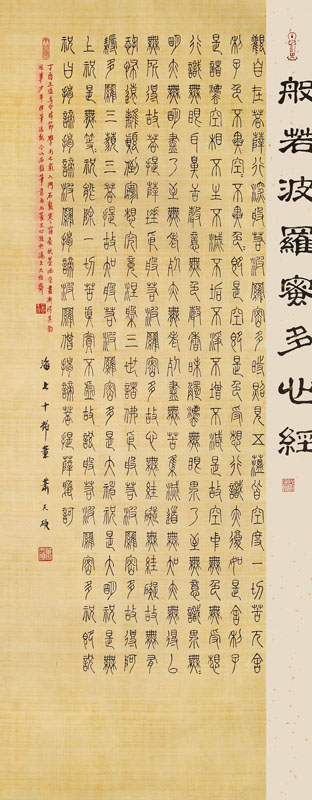 般若波羅蜜多心經
觀自在菩薩行深般若波羅蜜多時照見五蘊皆空度一切苦厄舍
利子色不異空空不異色色即是空空即是色受想行識亦復如是舍利子
是諸法空相不生不滅不垢不淨不增不減是故空中無色無受想
行識無眼耳鼻舌身意無色聲香味觸法無眼界乃至無意識界無無
明亦無無明盡乃至無老死亦無老死盡無苦集滅道無智亦無得以
無所得故菩提薩埵依般若波羅蜜多故心無罣礙無罣礙故無有
恐怖遠離顛倒夢想究竟涅槃三世諸佛依般若波羅蜜多故得阿
耨多羅三藐三菩提故知般若波羅蜜多是大神咒是大明咒是無
上咒是無等等咒能除一切苦真實不虛故說般若波羅蜜多咒即說
咒曰揭諦揭諦波羅揭諦波羅僧揭諦菩提薩婆訶
海上十齡童 蕭天碩